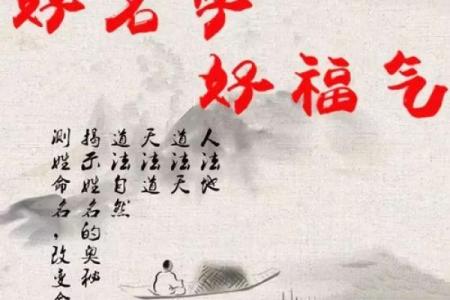 好名字
好福气
人法地
道法天
天法道
道法自然
揭示姓名的奥秘
测姓命名，改变命